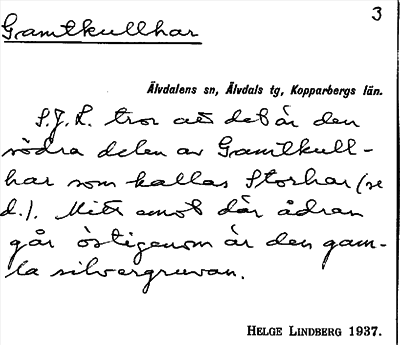 3
Gamtkullhar
Älvdalens sn, Älvdals tg, Kopparbergs län.
S.J.L. tror att det är den
södra delen av Gamtkull-
har som kallas Storhar (se
d.). Mitt emot där ådran
går östigenom är den gam-
la silvergruvan.
HELGE LINDBERG 1937.